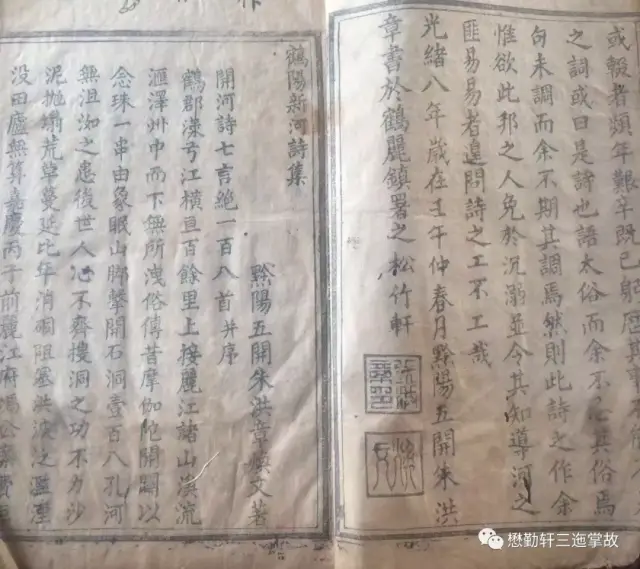 或輟者頻年艱辛既已躬歷其事不
之詞或曰是詩也語太俗而余不必其俗焉
句未調而余不期其調焉然則此詩之作余
惟欲此邦之人免於沉溺並令其知導河之
匪易易者遑問詩之工不工哉
光緒八年歲在壬午仲春月黔陽五開朱洪
章書於鶴麗鎮署之松竹軒
鶴陽新河詩集
黔陽五開朱洪章煥文著
開河詩七言絕一百八首并序
鶴郡漾弓江橫亘百餘里上接麗江諸山溪流
滙澤州中而下無所洩俗傳昔摩伽陀開闢以
念珠一串由象眠山脚擊開石洞壹百八孔河
無沮洳之患後世人心不齊搜洞之功不力沙
泥拋塌荒草蔓延比年消涸阻塞洪波泛濫湮
没田廬無算嘉慶丙子前麗江府馮公募費
懋勤轩三迤掌故